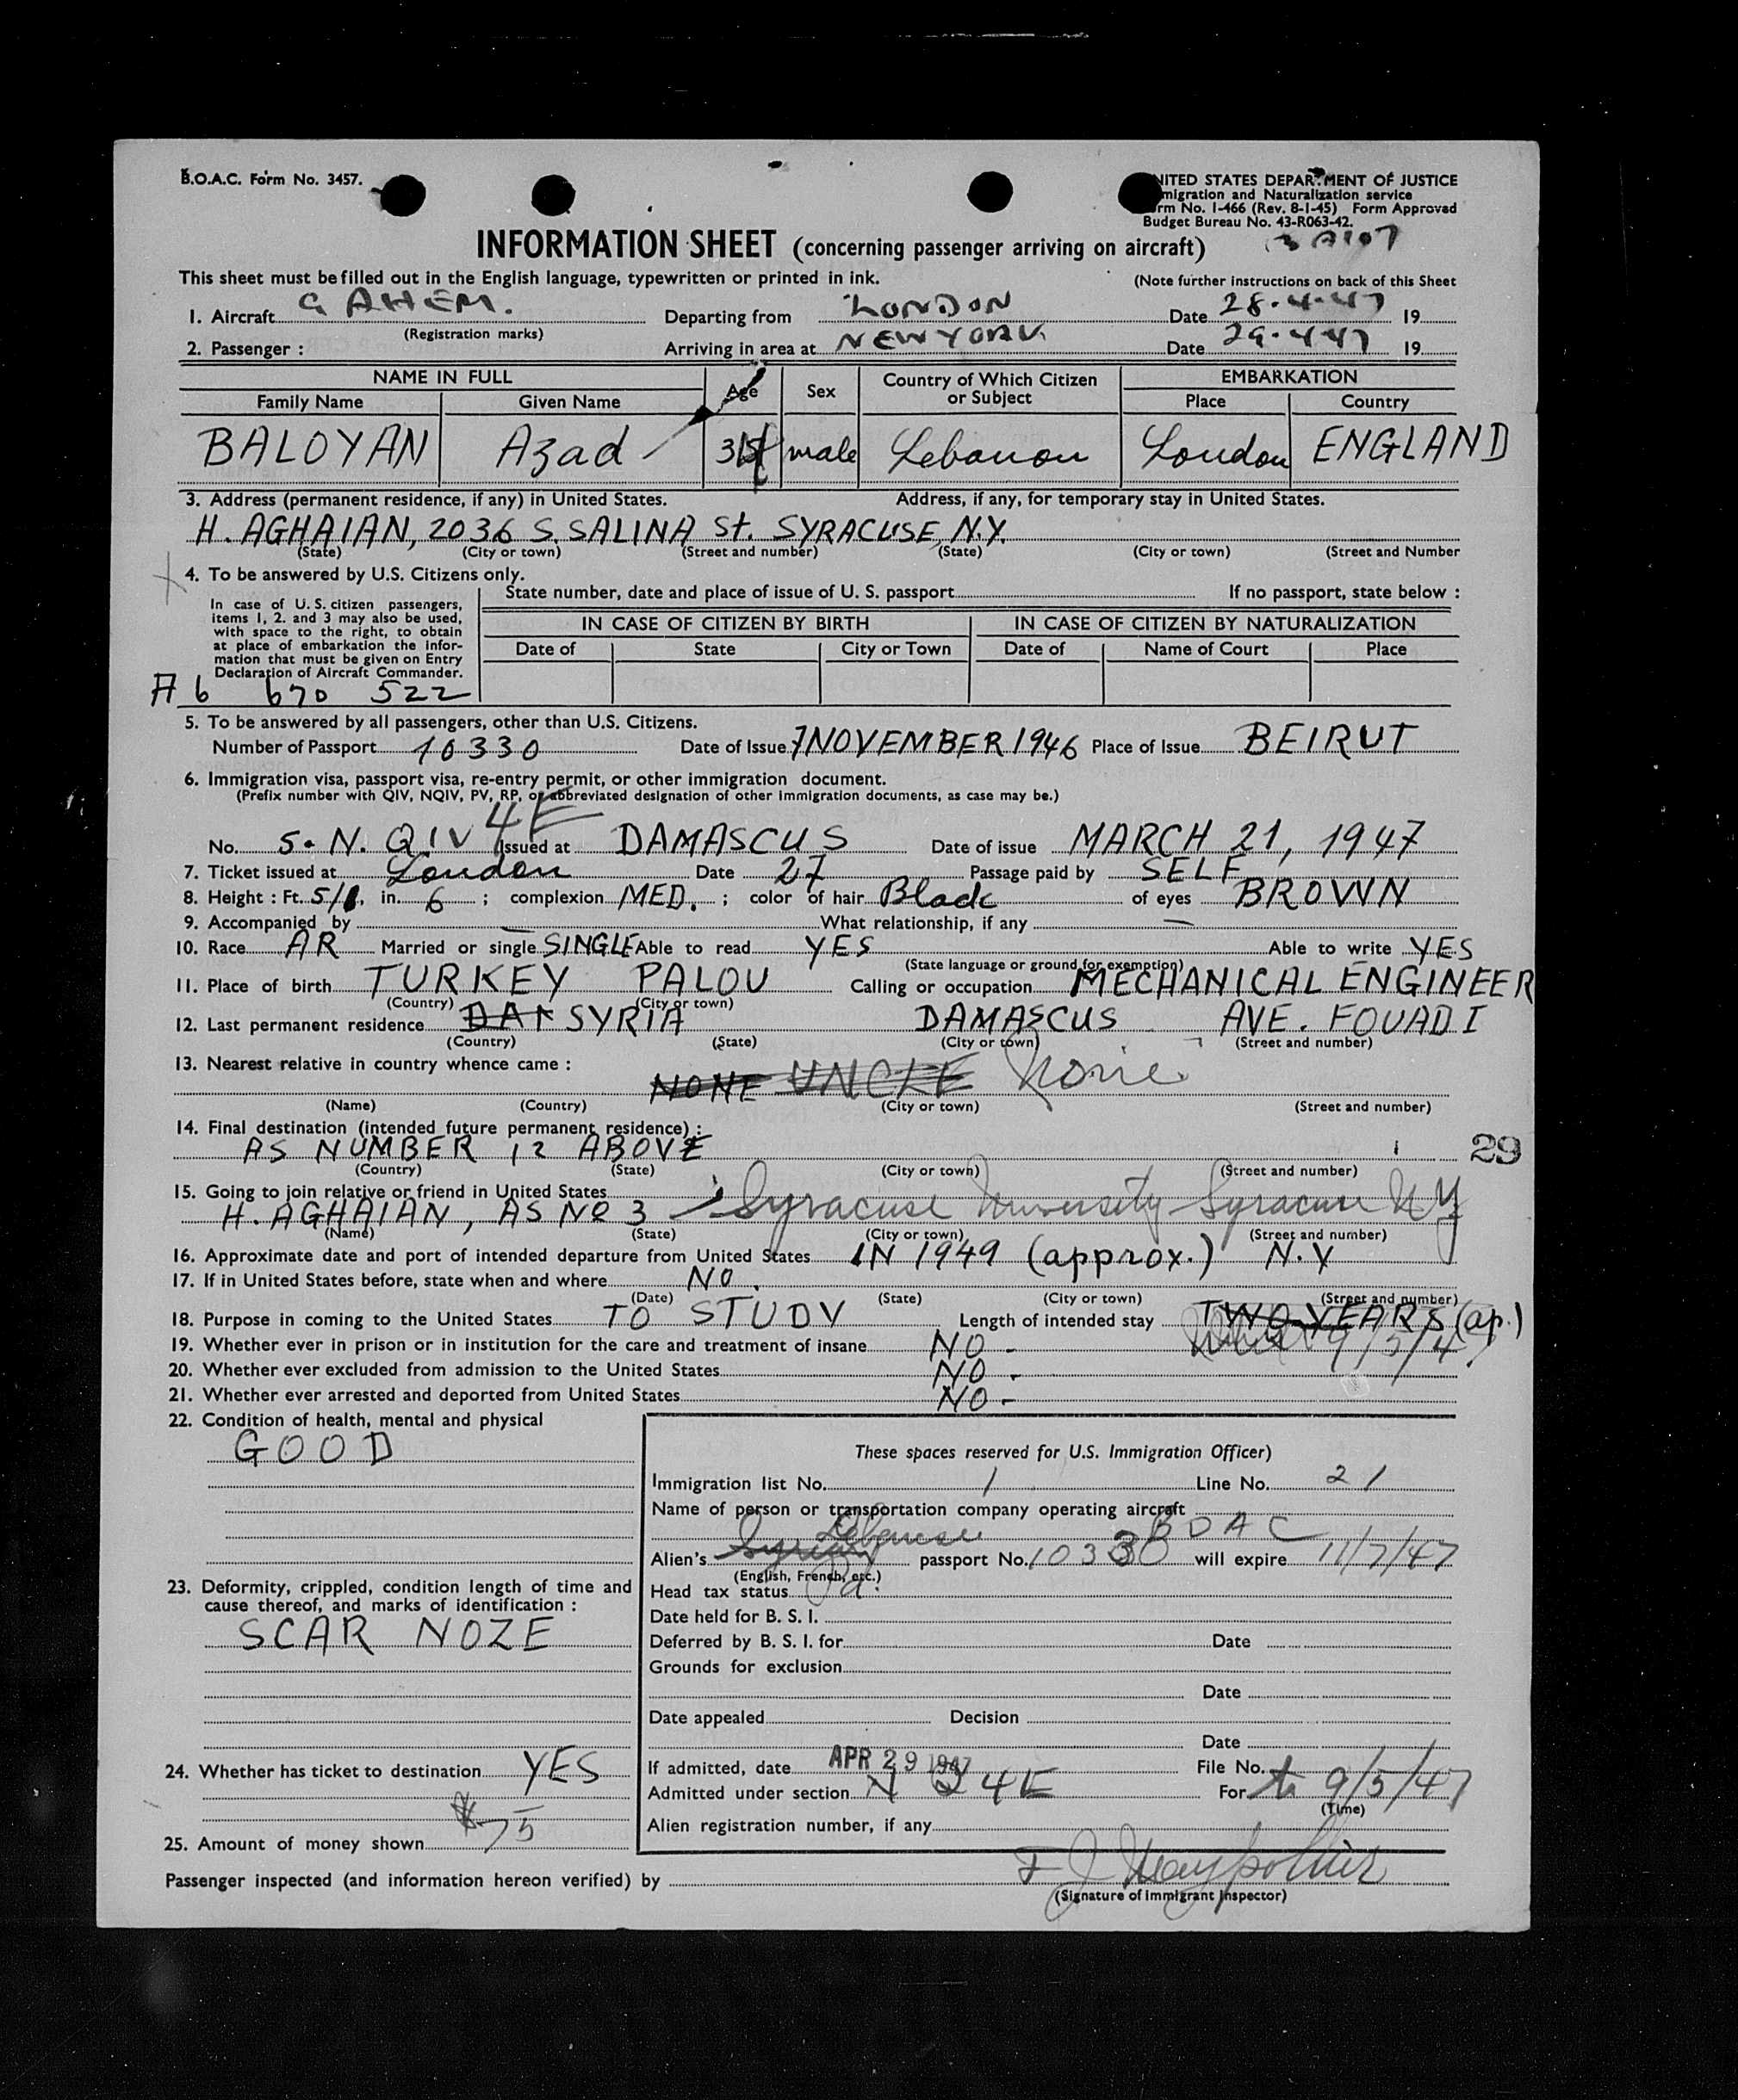 B.O.A.C. Form No. 3457.
NITED STATES DEPARTMENT OF JUSTICE
migration and Naturalization service
rm No. I-466 (Rev. 8-1-45) Form Approved
Budget Bureau No. 43-R063-42.
INFORMATION SHEET (concerning passenger arriving on aircraft)
This sheet must be filled out in the English language, typewritten or printed in ink. (Note further instructions on back of this Sheet
1. Aircraft G AHEM. Departing from LONDON Date 28.4.47 19
(Registration marks)
2. Passenger : Arriving in area at NEW YORK Date 29.4.47 19
NAME IN FULL Age Sex Country of Which Citizen or Subject EMBARKATION
Family Name Given Name Place Country
BALOYAN Azad male Lebanon London ENGLAND
3. Address (permanent residence, if any) in United States. Address, if any, for temporary stay in United States.
H. AGHAIAN, 2036 S. SALINA St. SYRACUSE, N.Y.
(State) (City or town) (Street and number) (State) (City or town) (Street and Number
4. To be answered by U.S. Citizens only.
State number, date and place of issue of U. S. passport If no passport, state below :
In case of U. S. citizen passengers,
items 1, 2. and 3 may also be used,
with space to the right, to obtain
at place of embarkation the infor-
mation that must be given on Entry
Declaration of Aircraft Commander.
IN CASE OF CITIZEN BY BIRTH IN CASE OF CITIZEN BY NATURALIZATION
Date of State City or Town Date of Name of Court Place
A 6 670 522
5. To be answered by all passengers, other than U.S. Citizens.
Number of Passport 10330 Date of Issue 7 NOVEMBER 1946 Place of Issue BEIRUT
6. Immigration visa, passport visa, re-entry permit, or other immigration document.
(Prefix number with QIV, NQIV, PV, RP, or abbreviated designation of other immigration documents, as case may be.)
4E
No. 5. N. QIV Issued at DAMASCUS Date of issue MARCH 21, 1947
7. Ticket issued at London Date 27 Passage paid by SELF
8. Height : Ft. 5/ in. 6 ; complexion MED. ; color of hair Black of eyes BROWN
9. Accompanied by — What relationship, if any —
10. Race AR Married or single SINGLE Able to read YES Able to write YES
(State language or ground for exemption)
11. Place of birth TURKEY PALOU Calling or occupation MECHANICAL ENGINEER
(Country) (City or town)
12. Last permanent residence DAM SYRIA DAMASCUS AVE. FOUAD I
(Country) (State) (City or town) (Street and number)
13. Nearest relative in country whence came :
NONE UNCLE None
(Name) (Country) (City or town) (Street and number)
14. Final destination (intended future permanent residence) :
AS NUMBER 12 ABOVE 29
(Country) (State) (City or town) (Street and number)
15. Going to join relative or friend in United States
H. AGHAIAN, AS No 3 Syracuse University Syracuse N Y
(Name) (State) (City or town) (Street and number)
16. Approximate date and port of intended departure from United States IN 1949 (approx.) N.Y
17. If in United States before, state when and where NO.
(Date) (State) (City or town) (Street and number)
18. Purpose in coming to the United States TO STUDY Length of intended stay TWO YEARS (ap.)
19. Whether ever in prison or in institution for the care and treatment of insane NO - 9/5/47
20. Whether ever excluded from admission to the United States NO.
21. Whether ever arrested and deported from United States NO-
22. Condition of health, mental and physical
GOOD
These spaces reserved for U.S. Immigration Officer)
Immigration list No. 1 Line No. 21
Name of person or transportation company operating aircraft
BOAC
Lebanese
Alien's Syrian passport No. 10330 will expire 11/7/47
(English, French, etc.)
Head tax status Pd.
Date held for B. S. I.
Deferred by B. S. I. for Date
Grounds for exclusion
Date
Date appealed Decision
Date
23. Deformity, crippled, condition length of time and
cause thereof, and marks of identification :
SCAR NOZE
24. Whether has ticket to destination YES
If admitted, date APR 29 1947 File No.
Admitted under section N Q 4E For to 9/5/47
(Time)
Alien registration number, if any
$75
25. Amount of money shown
Passenger inspected (and information hereon verified) by
(Signature of Immigrant Inspector)